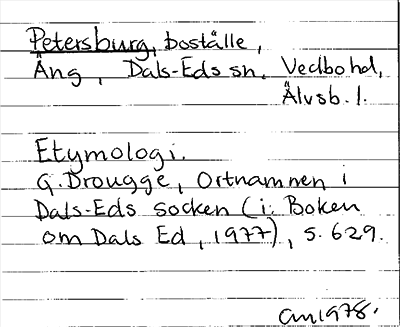 Petersburg, boställe,
Äng, Dals-Eds sn. Vedbo hd,
Älvsb. l.
Etymologi.
G. Drougge, Ortnamnen i
Dals-Eds socken (i: Boken
om Dals Ed, 1977), s. 629.
am 1978.